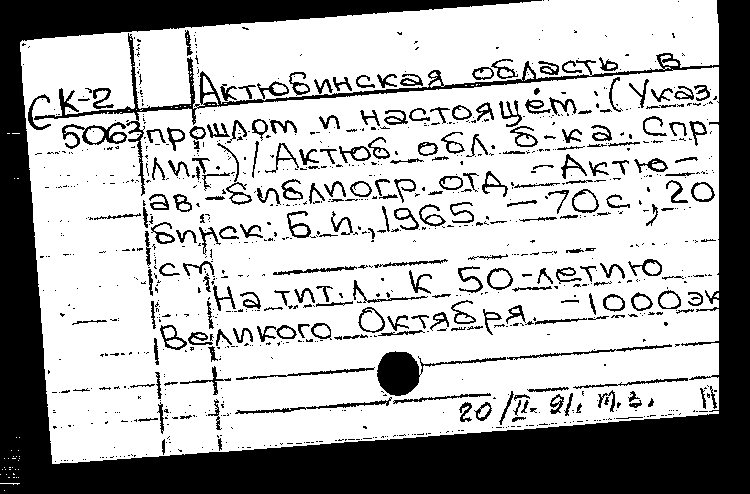 СК-2 Актюбинская область в
5063 прошлом и настоящем: (Указ.
лит.) / Актюб. обл. б-ка. Спр-
ав.-библиогр. отд. - Актю-
бинск: Б. и., 1965. - 70 с.; 20
см.
На тит. л.: К 50-летию
Великого Октября. - 1000 эк
20/II-91. т.з.